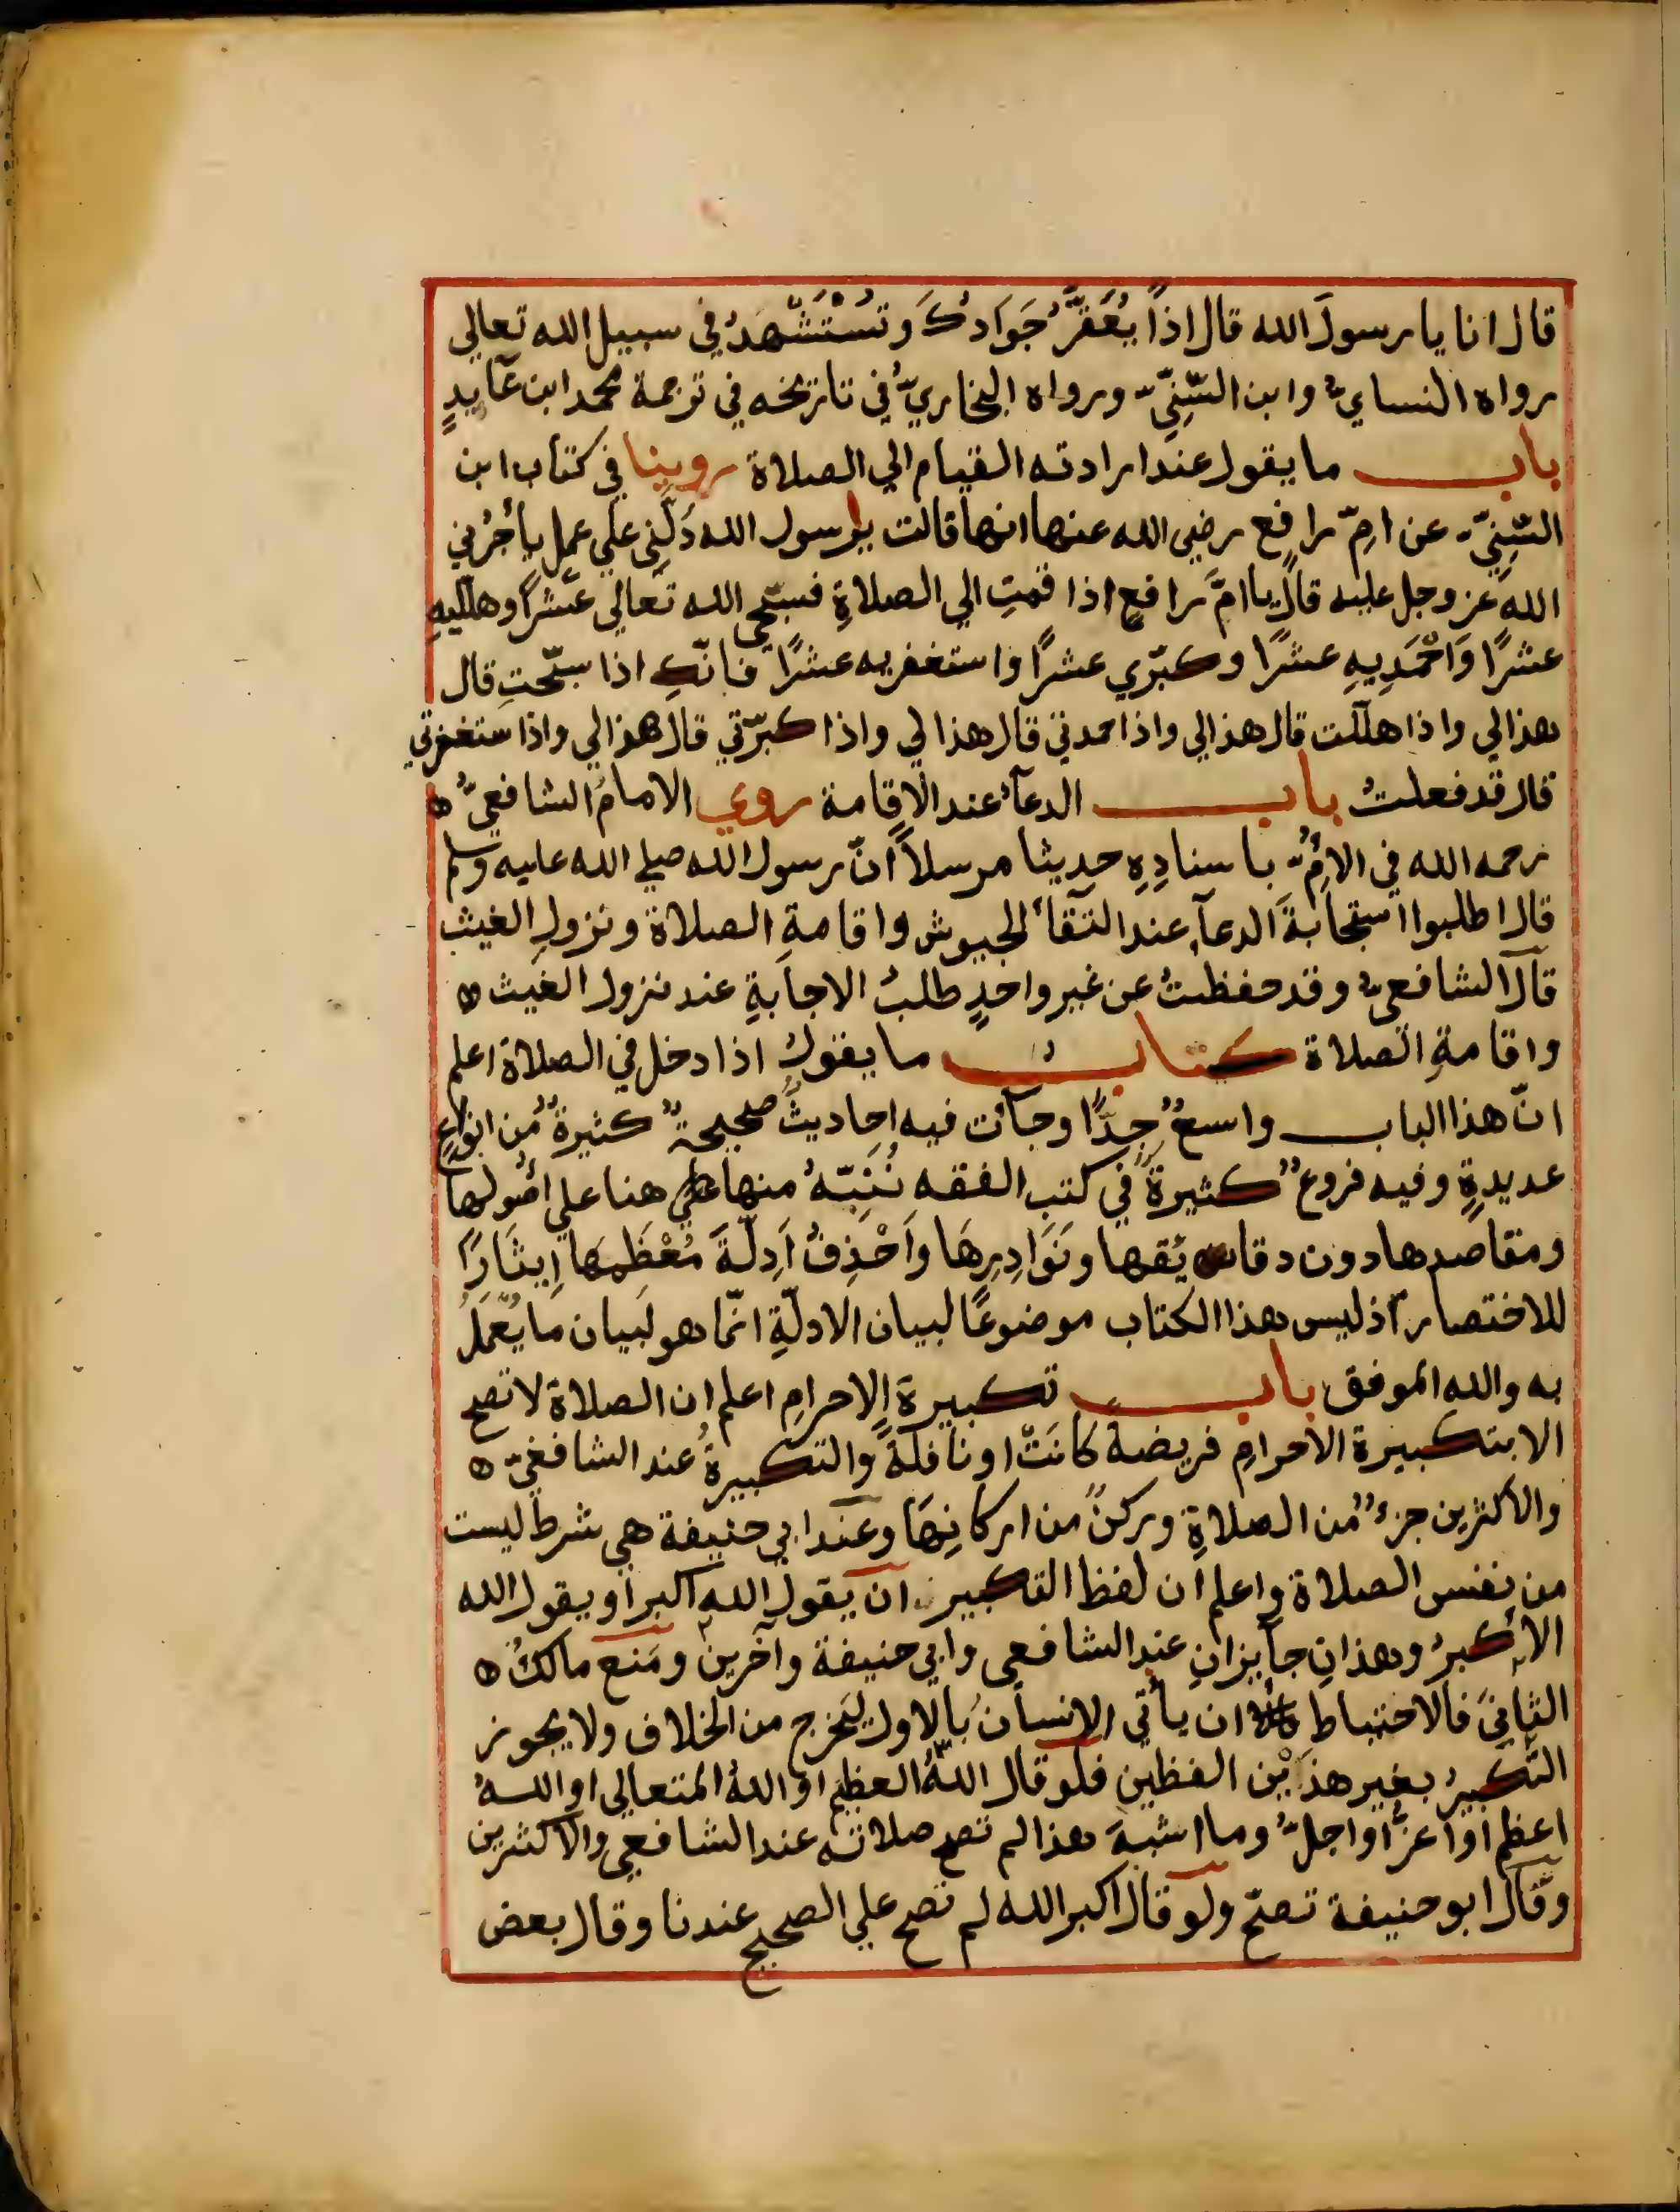 قال انا يا رسولَ الله قال اذاً يُعَقَّرُ جَوَادُكَ وتُسْتَشْهَدُ في سبيل الله تعالي
رواه النسايُّ وابن السُّنِيّ ورواه البخاريُّ في تاريخه في ترجمة محمد ابن عَايِدٍ
باب ما يقول عند ارادته القيام الي الصلاة روينا في كتاب ابن
السُّنِيّ عن امِّ رافع رضي الله عنها انها قالت يا رسول الله دُلَّنِي علي عمل يأجُرُني
الله عز وجل عليه قال يا امَّ رافعٍ اذا قمتِ الي الصلاةِ فسبّحي الله تعالي عشراً وهلّليهِ
عشرًا وَاحْمَدِيهِ عشرًا وكبّري عشرًا واستغفريه عشرًا فانّكِ اذا سبّحتِ قال
هذا لي واذا هللت قال هذا لي واذا حمدتي قال هذا لي واذا كبرّتي قال هذا لي واذا ستغفرتي
قال قد فعلتُ باب الدعآء عند الاقامة روي الامامُ الشافعيُّ ه
رحمه الله في الامِّ باسنادِهِ حديثا مرسلاً انّ رسول الله صلي الله عليه وسلم
قال اطلبوا استجابةَ الدعآء عند التقآء الجيوش واقامةِ الصلاة ونزولِ الغيث
قال الشافعيُّ وقد حفظتُ عن غير واحدٍ طلبُ الاجابةِ عند نزول الغيث ه
واقامةِ الصلاة كتابُ ما يقولُ اذا دخل في الصلاة اعلم
انّ هذا الباب واسعٌ جدًّا وجآت فيه احاديثُ صحيحةٌ كثيرةٌ من انواعٍ
عديدةٍ وفيه فروعٌ كثيرةٌ في كتب الفقه نُنَبِّهُ منها هنا علي اصولها
ومقاصدها دون دقايقها ونَوَادِرِهَا واَحْذِفُ اَدِلَّةَ مُعْظَمِهَا اِيثَارًا
للاختصار اذ ليس هذا الكتاب موضوعًا لبيان الادلّةِ انّما هو لبيان ما يُعْمَلُ
به والله الموفق باب تكبيرة الاحرامِ اعلم ان الصلاة لا تصح
الا بتكبيرة الاحرامِ فريضةً كانَتْ او نافلةً والتكبيرةُ عند الشافعيّ ه
والاكثرين جزءٌ من الصلاةِ وركنٌ من اركانِهَا وعند ابي حنيفة هي شرط ليست
من نفس الصلاة واعلم ان لفظ التكبير ان يقول الله اكبر او يقول الله
الاكبرُ وهذانِ جآيزانِ عند الشافعي وابي حنيفة وآخرين ومَنع مالكٌ ه
الثانيَ فالاحتياط ان يأتي الانسان بالاول ليَخرج من الخلاف ولا يجوز
التكبيرُ بغير هذَيْن الفظين فلو قال اللهُ العظيم او اللهُ المتعالي او اللهُ
اعظم او اعزُّ او اجلُّ وما اشبهَ هذا لم تصح صلاته عند الشافعي والاكثرين
وقال ابو حنيفة تصحّ ولو قال اكبر الله لم تصح علي الصحيح عندنا وقال بعض